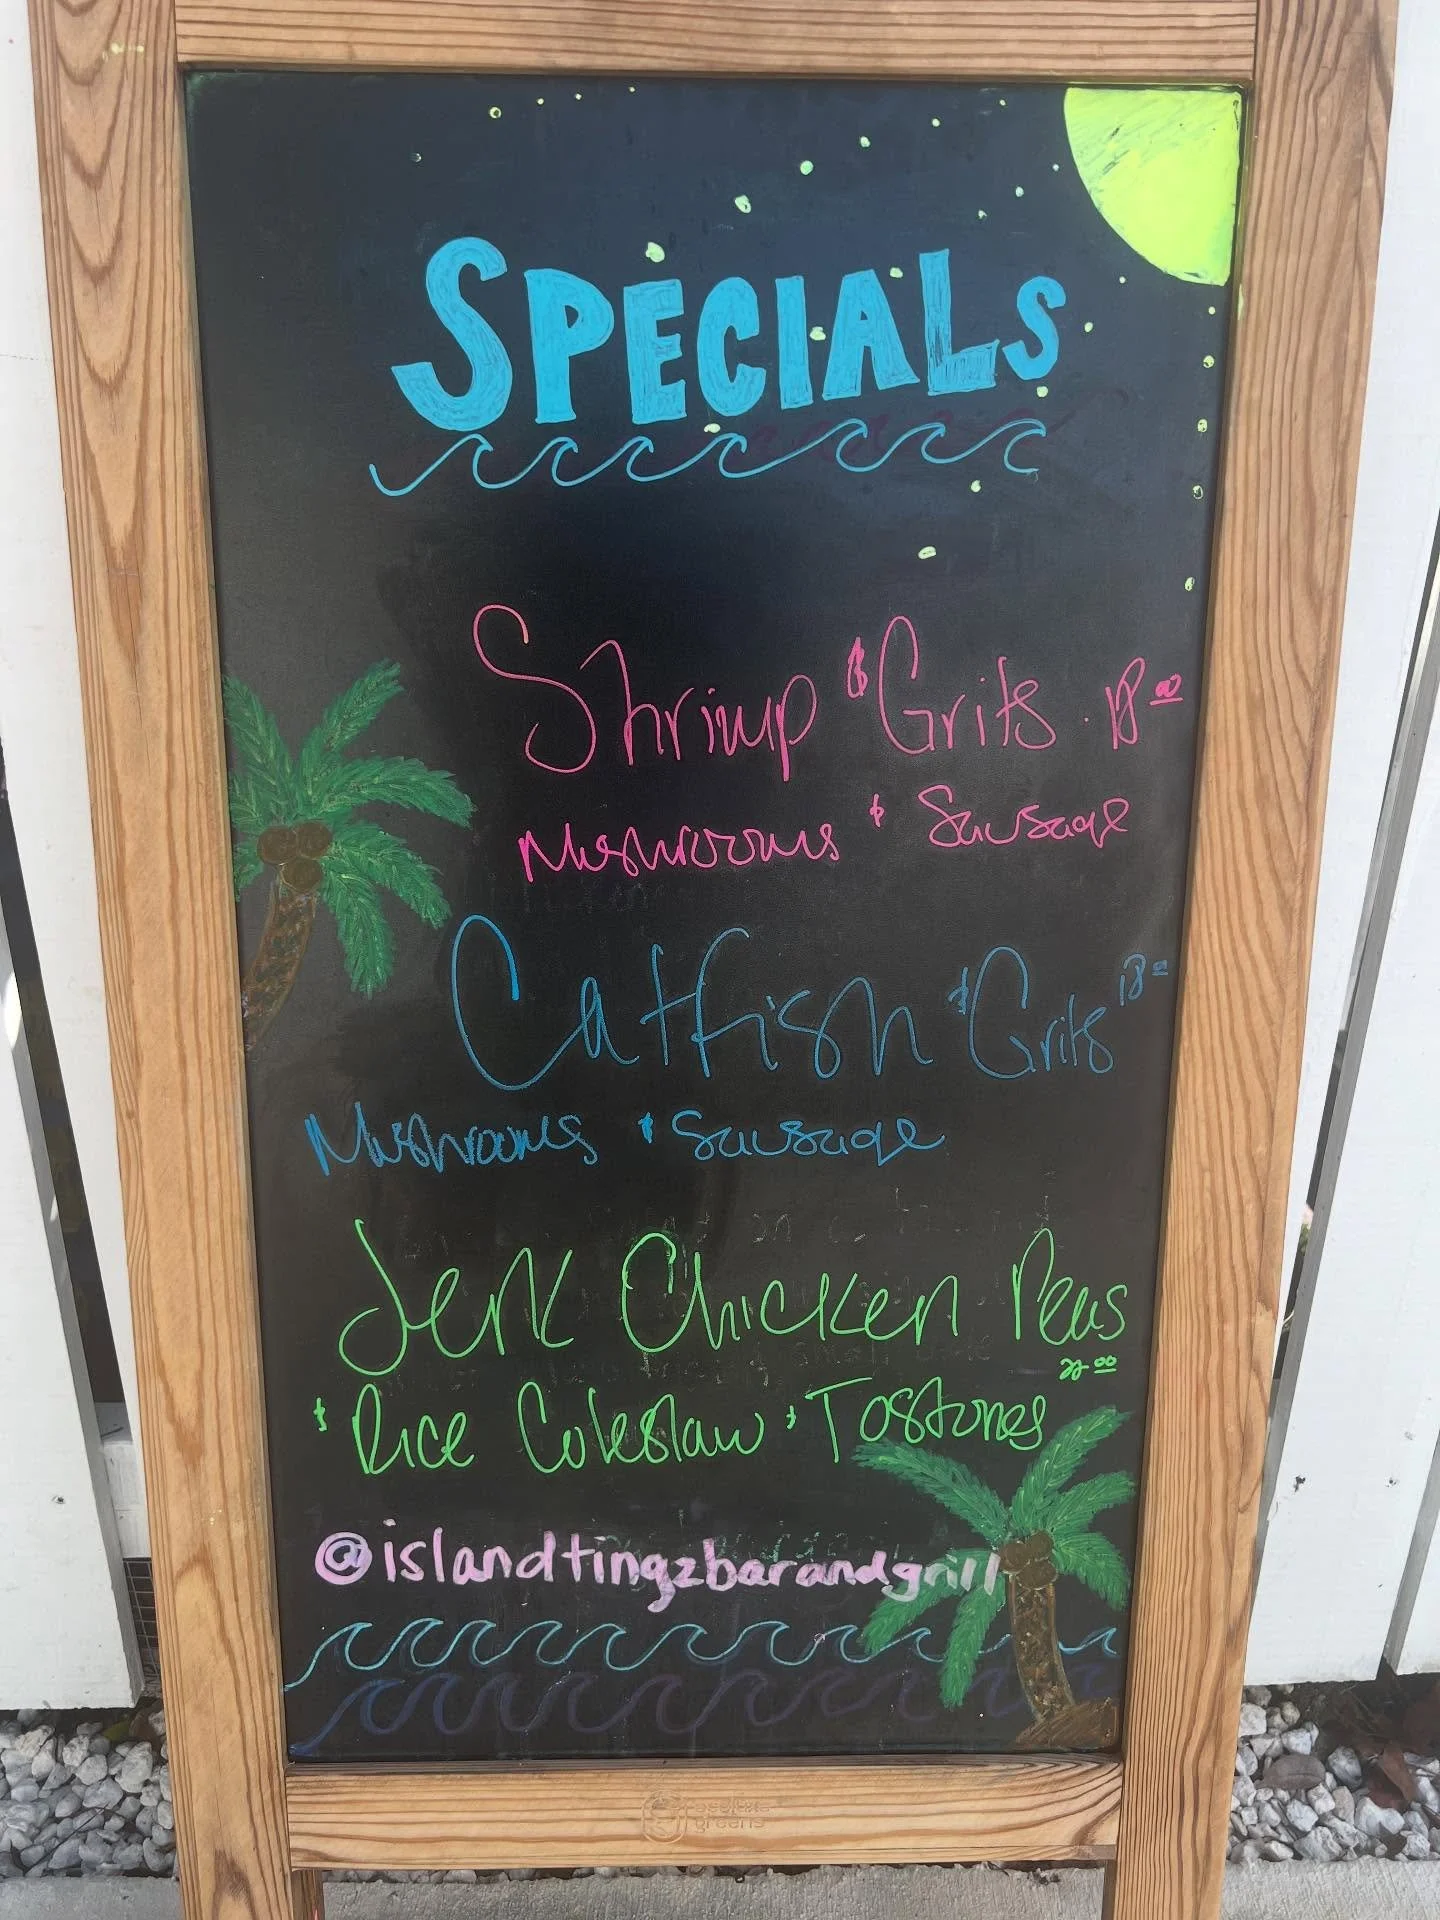 SPECIALS
Shrimp & Grits . 18 00
Mushrooms & Sausage
Catfish & Grits 18 00
Mushrooms & Sausage
Jerk Chicken Peas
& Rice Coleslaw & Tostones 22 00
@islandtingzbarandgrill